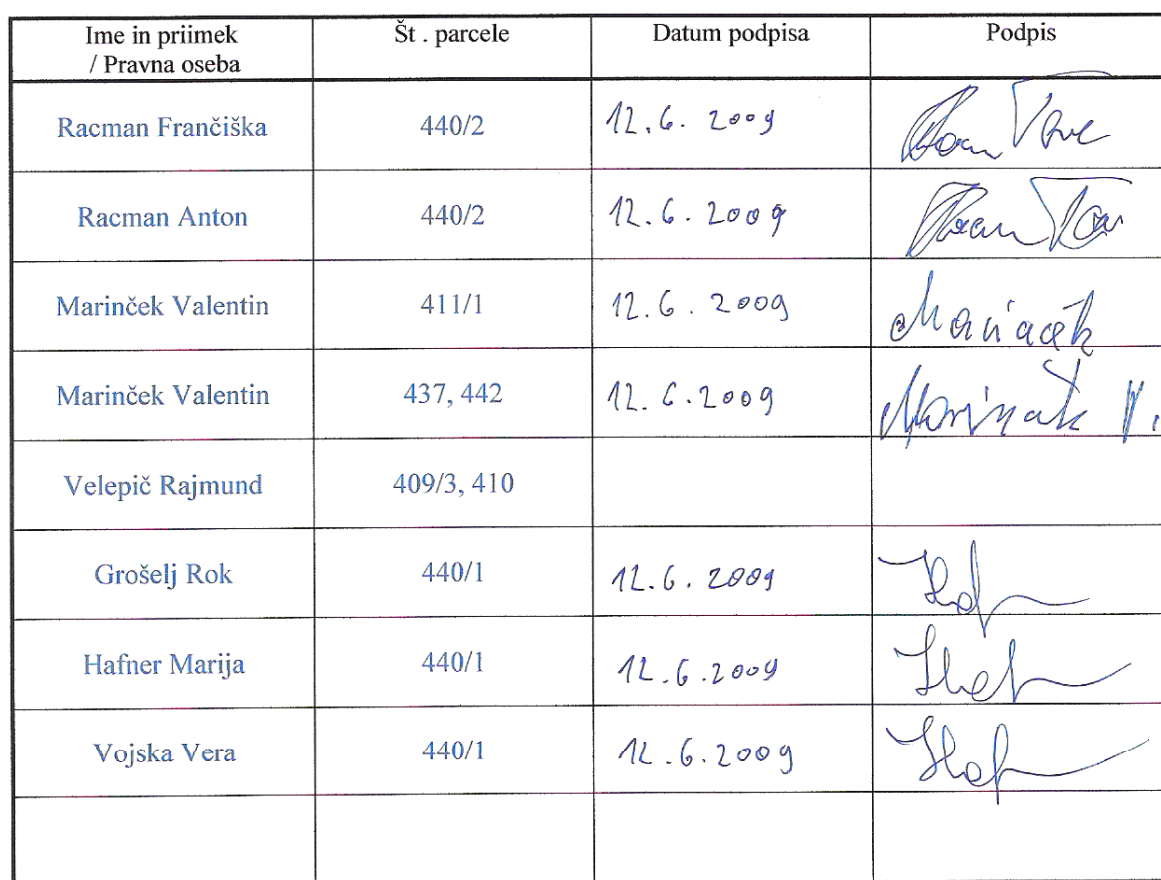 Ime in priimek
/ Pravna oseba
Št . parcele
Datum podpisa
Podpis
Racman Frančiška 440/2 12.6. 2009
Racman Anton 440/2 12.6.2009
Marinček Valentin 411/1 12.6. 2009
Marinček Valentin 437, 442 12.6.2009
Velepič Rajmund 409/3, 410
Grošelj Rok 440/1 12.6. 2009
Hafner Marija 440/1 12.6.2009
Vojska Vera 440/1 12.6.2009